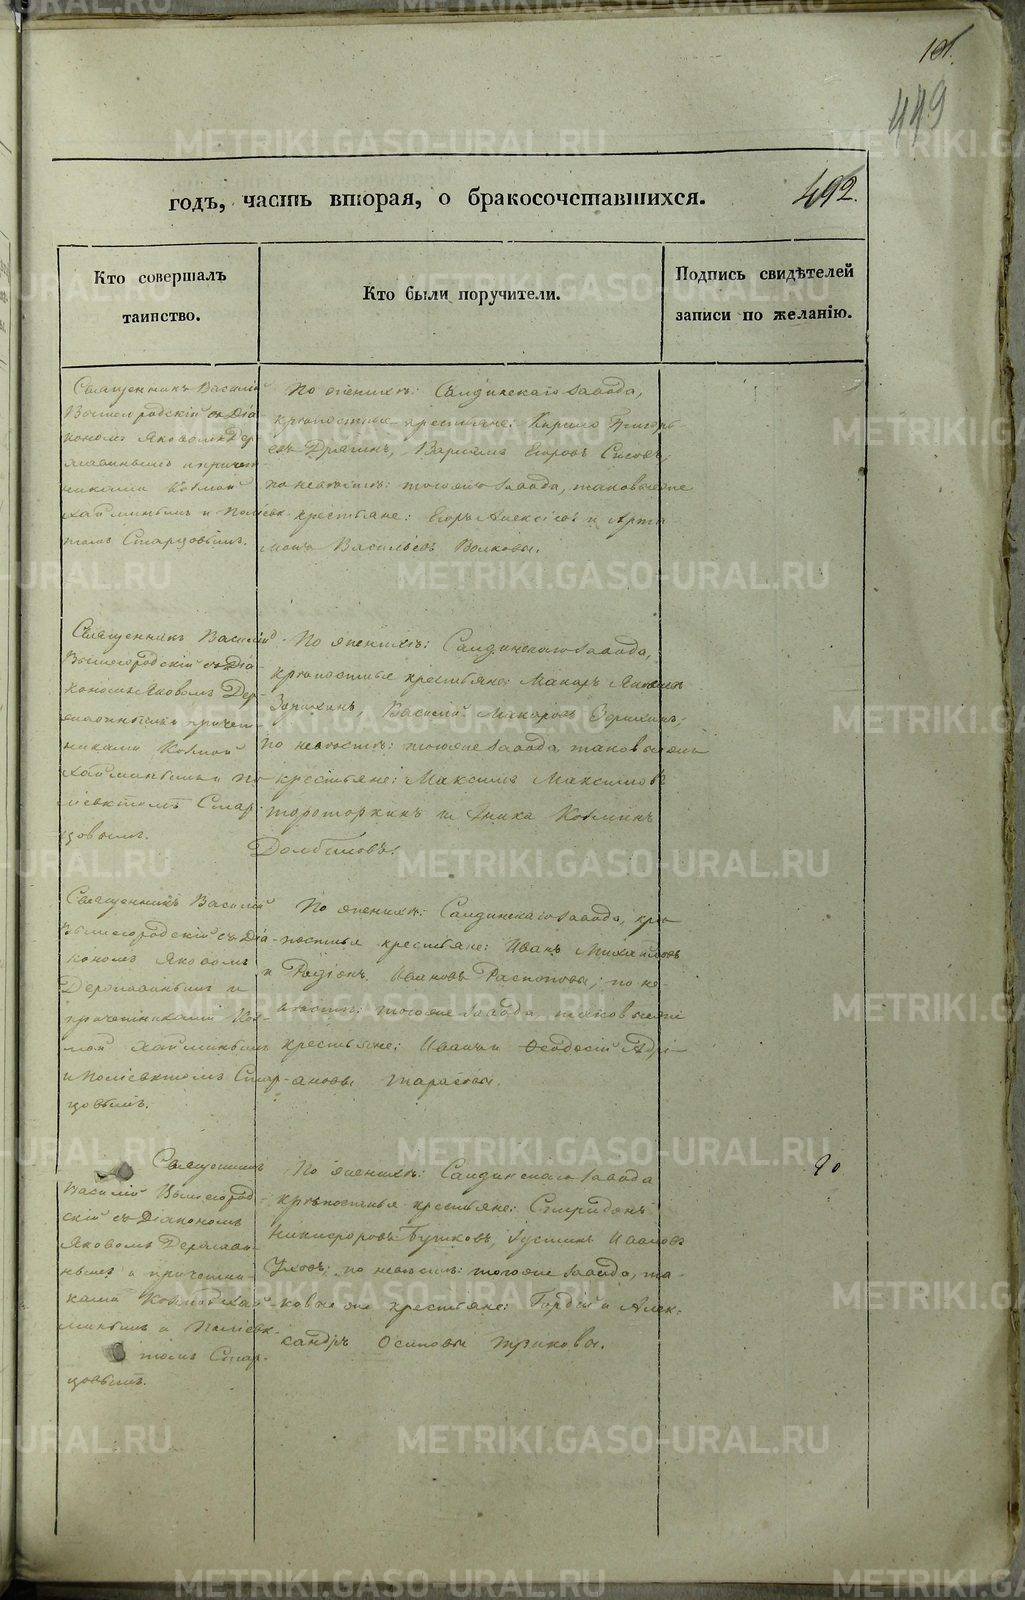 101.
449
492.
годъ, часть вторая, о бракосочетавшихся.
Кто совершалъ
таинство.
Кто были поручители.
Подпись свидѣтелей
записи по желанію.
Священникъ Василій
Вышегородскій съ Діа
кономъ Яковомъ Дер
жавинымъ и причет
никами Козмой
Хайминымъ и Поліевк
томъ Старцовымъ.
По женихѣ: Салдинскаго завода,
крѣпостные крестьяне: Кирило Григорь
евъ Дрягинъ, Варламъ Егоровъ Сисовъ,
по невѣстѣ: тогоже завода, таковые же
крестьяне: Егоръ Алексѣевъ и Арта
монъ Васильевъ Волковы.
Священникъ Василій
Вышегородскій съ Діа
кономъ Яковомъ Дер
жавинымъ и причет
никами Козмой
Хайминымъ и По
ліевктомъ Стар
цовымъ.
По женихѣ: Салдинскаго завода,
крѣпостные крестьяне: Макаръ
Василій Макаровъ
по невѣстѣ: тогоже завода таковые же
крестьяне: Максимъ Максимовъ
и Козминъ
Долбиловъ.
Священникъ Василій
Вышегородскій съ Діа
кономъ Яковомъ
Державинымъ и
причетниками Коз
мой Хайминымъ
и Поліевктомъ Стар
цовымъ.
По женихѣ: Салдинскаго завода, крѣ
постныя крестьяне: Иванъ Михайловъ
и Радіонъ Ивановъ Распоповы; по не
вѣстѣ: тогоже завода таковыежъ
крестьяне: Иванъ и Ѳеодосій Адрі
ановы Тарасовы.
Священникъ
Василій Вышегород
скій съ Діакономъ
Яковомъ Держави
нымъ и причетни
ками Козмой Хай
минымъ и Поліевк
томъ Стар
цовымъ.
По женихѣ: Салдинскаго завода
крѣпостныя крестьяне: Спиридонъ
Никифоровъ Бушковъ, Іустинъ Ивановъ
Уховъ; по невѣстѣ: тогоже завода, та
ковые же крестьяне: Гордѣй и Алек
сандръ Осиповы